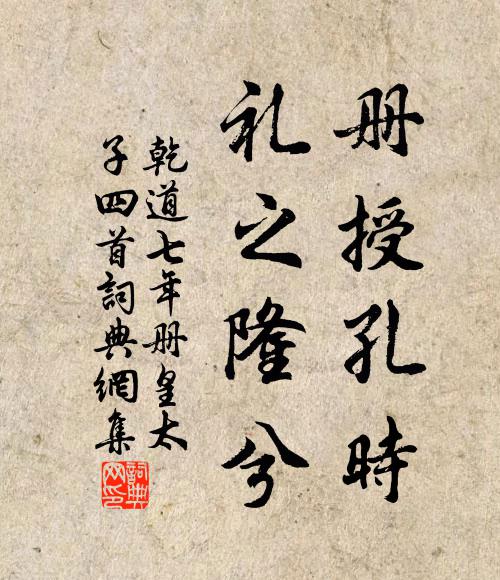 册授孔時
礼之隆兮
乾道七年册皇太
子四首詞典網集
詞典
网印